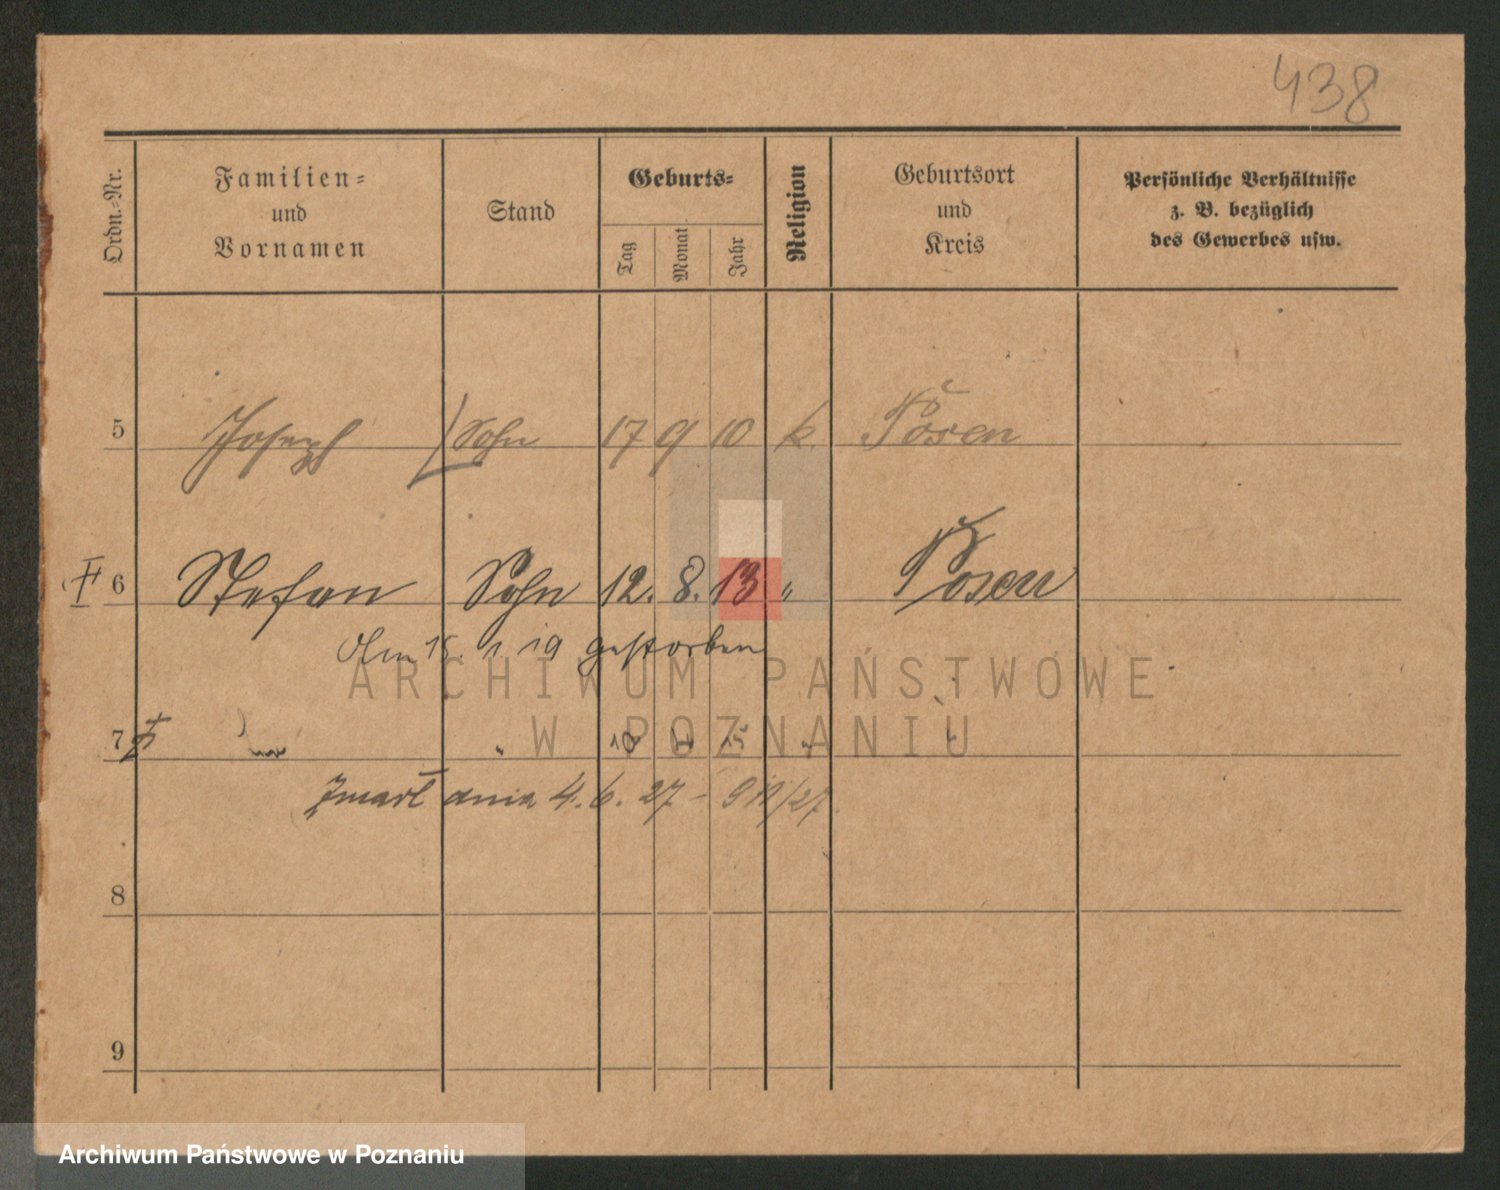 438
Ordn.-Nr. Familien- und Vornamen Stand Geburts- Tag Monat Jahr Religion Geburtsort und Kreis Persönliche Verhältnisse z. B. bezüglich des Gewerbes usw.
5 Joseph Sohn 17 9 10 k. Posen
6 Stefan Sohn 12. 8. 13 " Posen
Am 15. 1. 19 gestorben
7 " "
Zmarł dnia 4. 6. 27 -
8
9
ARCHIWUM PAŃSTWOWE
W POZNANIU
Archiwum Państwowe w Poznaniu